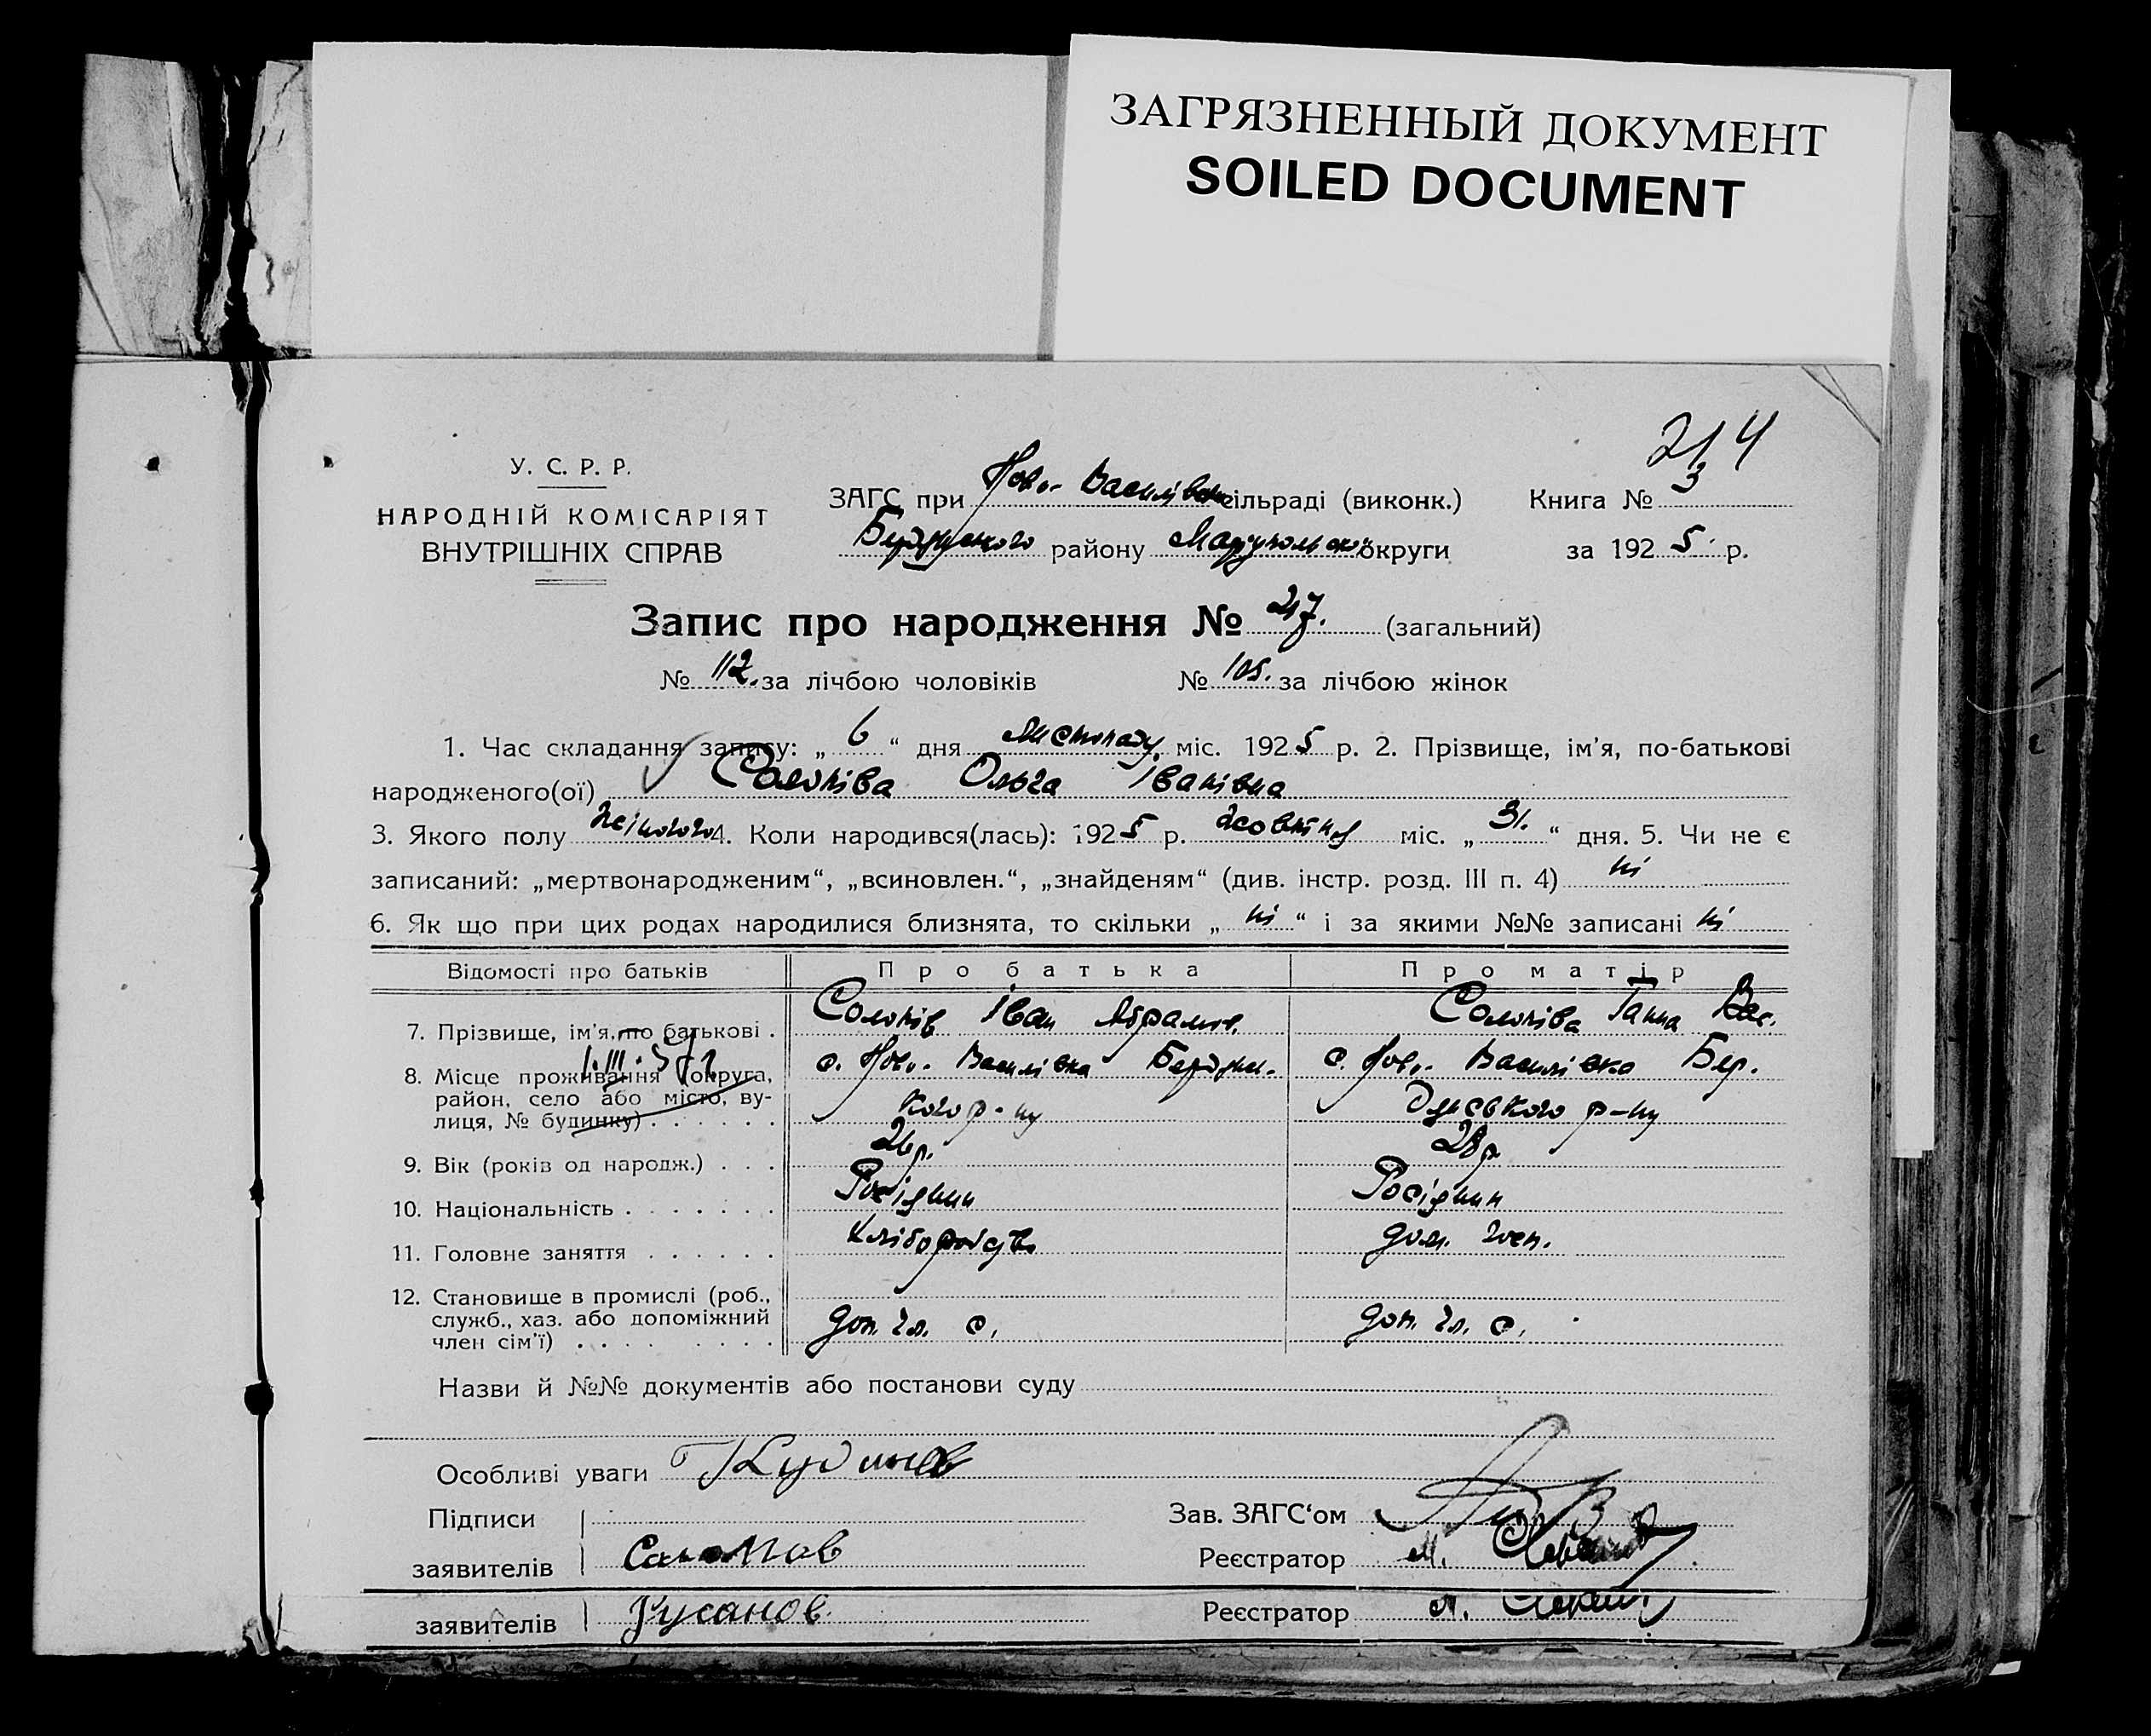 ЗАГРЯЗНЕННЫЙ ДОКУМЕНТ
SOILED DOCUMENT
214
У. С. Р. Р.
НАРОДНІЙ КОМІСАРІЯТ
ВНУТРІШНІХ СПРАВ
ЗАГС при Ново-Василівск сільраді (виконк.) Книга № 3
району Маріупольської округи за 1925 р.
Запис про народження № 217. (загальний)
№ 112. за лічбою чоловіків № 105. за лічбою жінок
1. Час складання запису: „ 6 “ дня листопаду міс. 1925 р. 2. Прізвище, ім’я, по-батькові
народженого(ої) Солопіва Ольга Іванівна
3. Якого полу жіночого 4. Коли народився(лась): 1925 р. жовтня міс. „ 31. “ дня. 5. Чи не є
записаний: „мертвонародженим“, „всиновлен.“, „знайденям“ (див. інстр. розд. III п. 4) ні
6. Як що при цих родах народилися близнята, то скільки „ ні “ і за якими №№ записані ні
Відомості про батьків Про батька Про матір
7. Прізвище, ім’я, по батькові . Солопів Іван Абрамов. Солопіва Ганна Вас.
8. Місце проживання (округа, район, село або місто, вулиця, № будинку) с. Ново-Василівка Бердян- с. Ново-Василівка Бер-
кого р-ну дянського р-ну
9. Вік (років од народж.) . . . 26 р. 28 р.
10. Національність . . . . . . . Росіянин Росіянин
11. Головне заняття . . . . . . Хліборобство дом. госп.
12. Становище в промислі (роб., служб., хаз. або допоміжний член сім’ї) . . . . . . . . доп. чл. с. доп. чл. с.
Назви й №№ документів або постанови суду
Особливі уваги
Підписи Зав. ЗАГС‘ом
заявителів Реєстратор М.
заявителів Русанов. Реєстратор